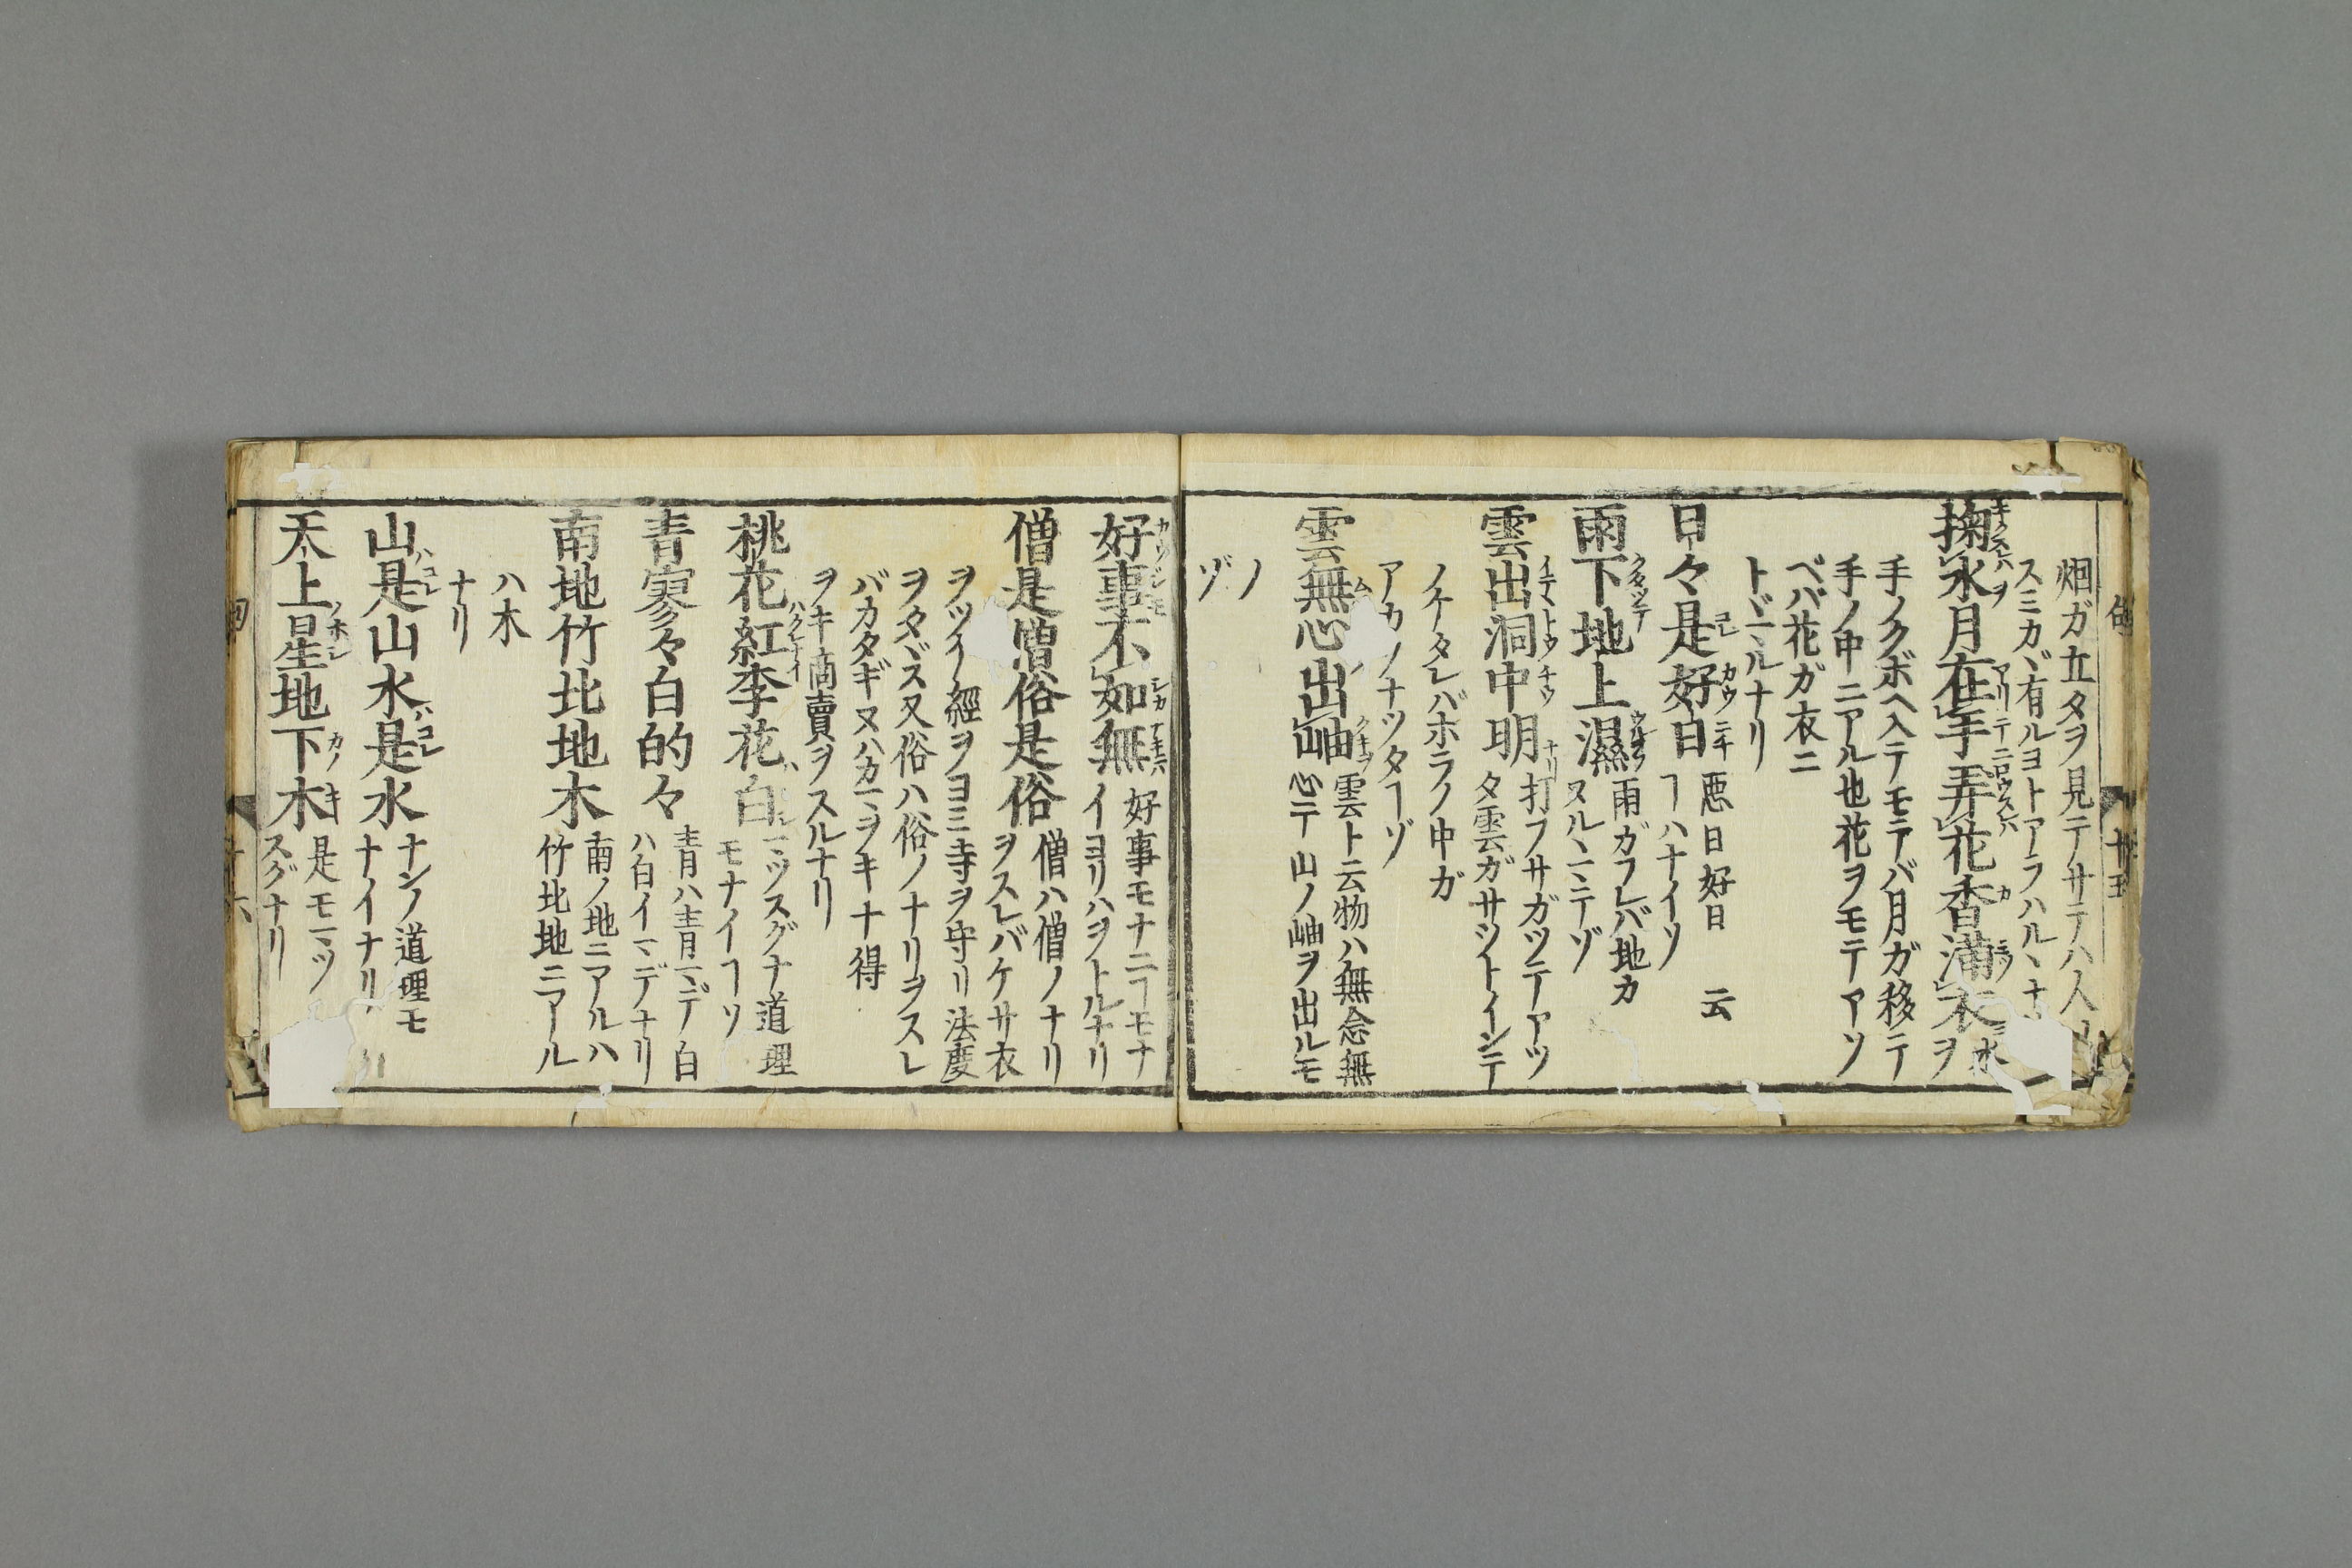 畑ガ立タヲ見テサテハ人
スミカヾ有ルヨトアラハルヽナ
掬水月在手弄花香満衣
ヲ
手ノクボヘ入テモテバ月ガ移テ
手ノ中ニアル也花ヲモテアソ
ベバ花ガ衣ニ
トヾマルナリ
日々是好日
悪日好日 云
ヿハナイソ
雨下地上濕
雨ガフレバ地カ
ヌルヽマテゾ
雲出洞中明
打フサガツテアツ
タ雲ガサツトインテ
ノケタレバホラノ中ガ
アカノナツタヿゾ
雲無心出岫
雲ト云物ハ無念無
心テ山ノ岫ヲ出ルモ
ノ
ゾ
句 廿五
好事不如無
好事モナニヿモナ
イヨリハヲトルナリ
僧是僧俗是俗
僧ハ僧ノナリ
ヲスレバケサ衣
ヲツイ經ヲヨミ寺ヲ守リ法度
ヲタヾス又俗ハ俗ノナリヲスレ
バカタギヌハカマヲキ十得
ヲキ商賣ヲスルナリ
桃花紅李花白
マツスグナ道理
モナイヿソ
青寥々白的々
青ハ青マデ白
ハ白イマデナリ
南地竹北地木
南ノ地ニアルハ
竹北地ニアール
ハ木
ナリ
山是山水是水
ナンノ道理モ
ナイナリ
天上星地下木
是モマツ
スグナリ